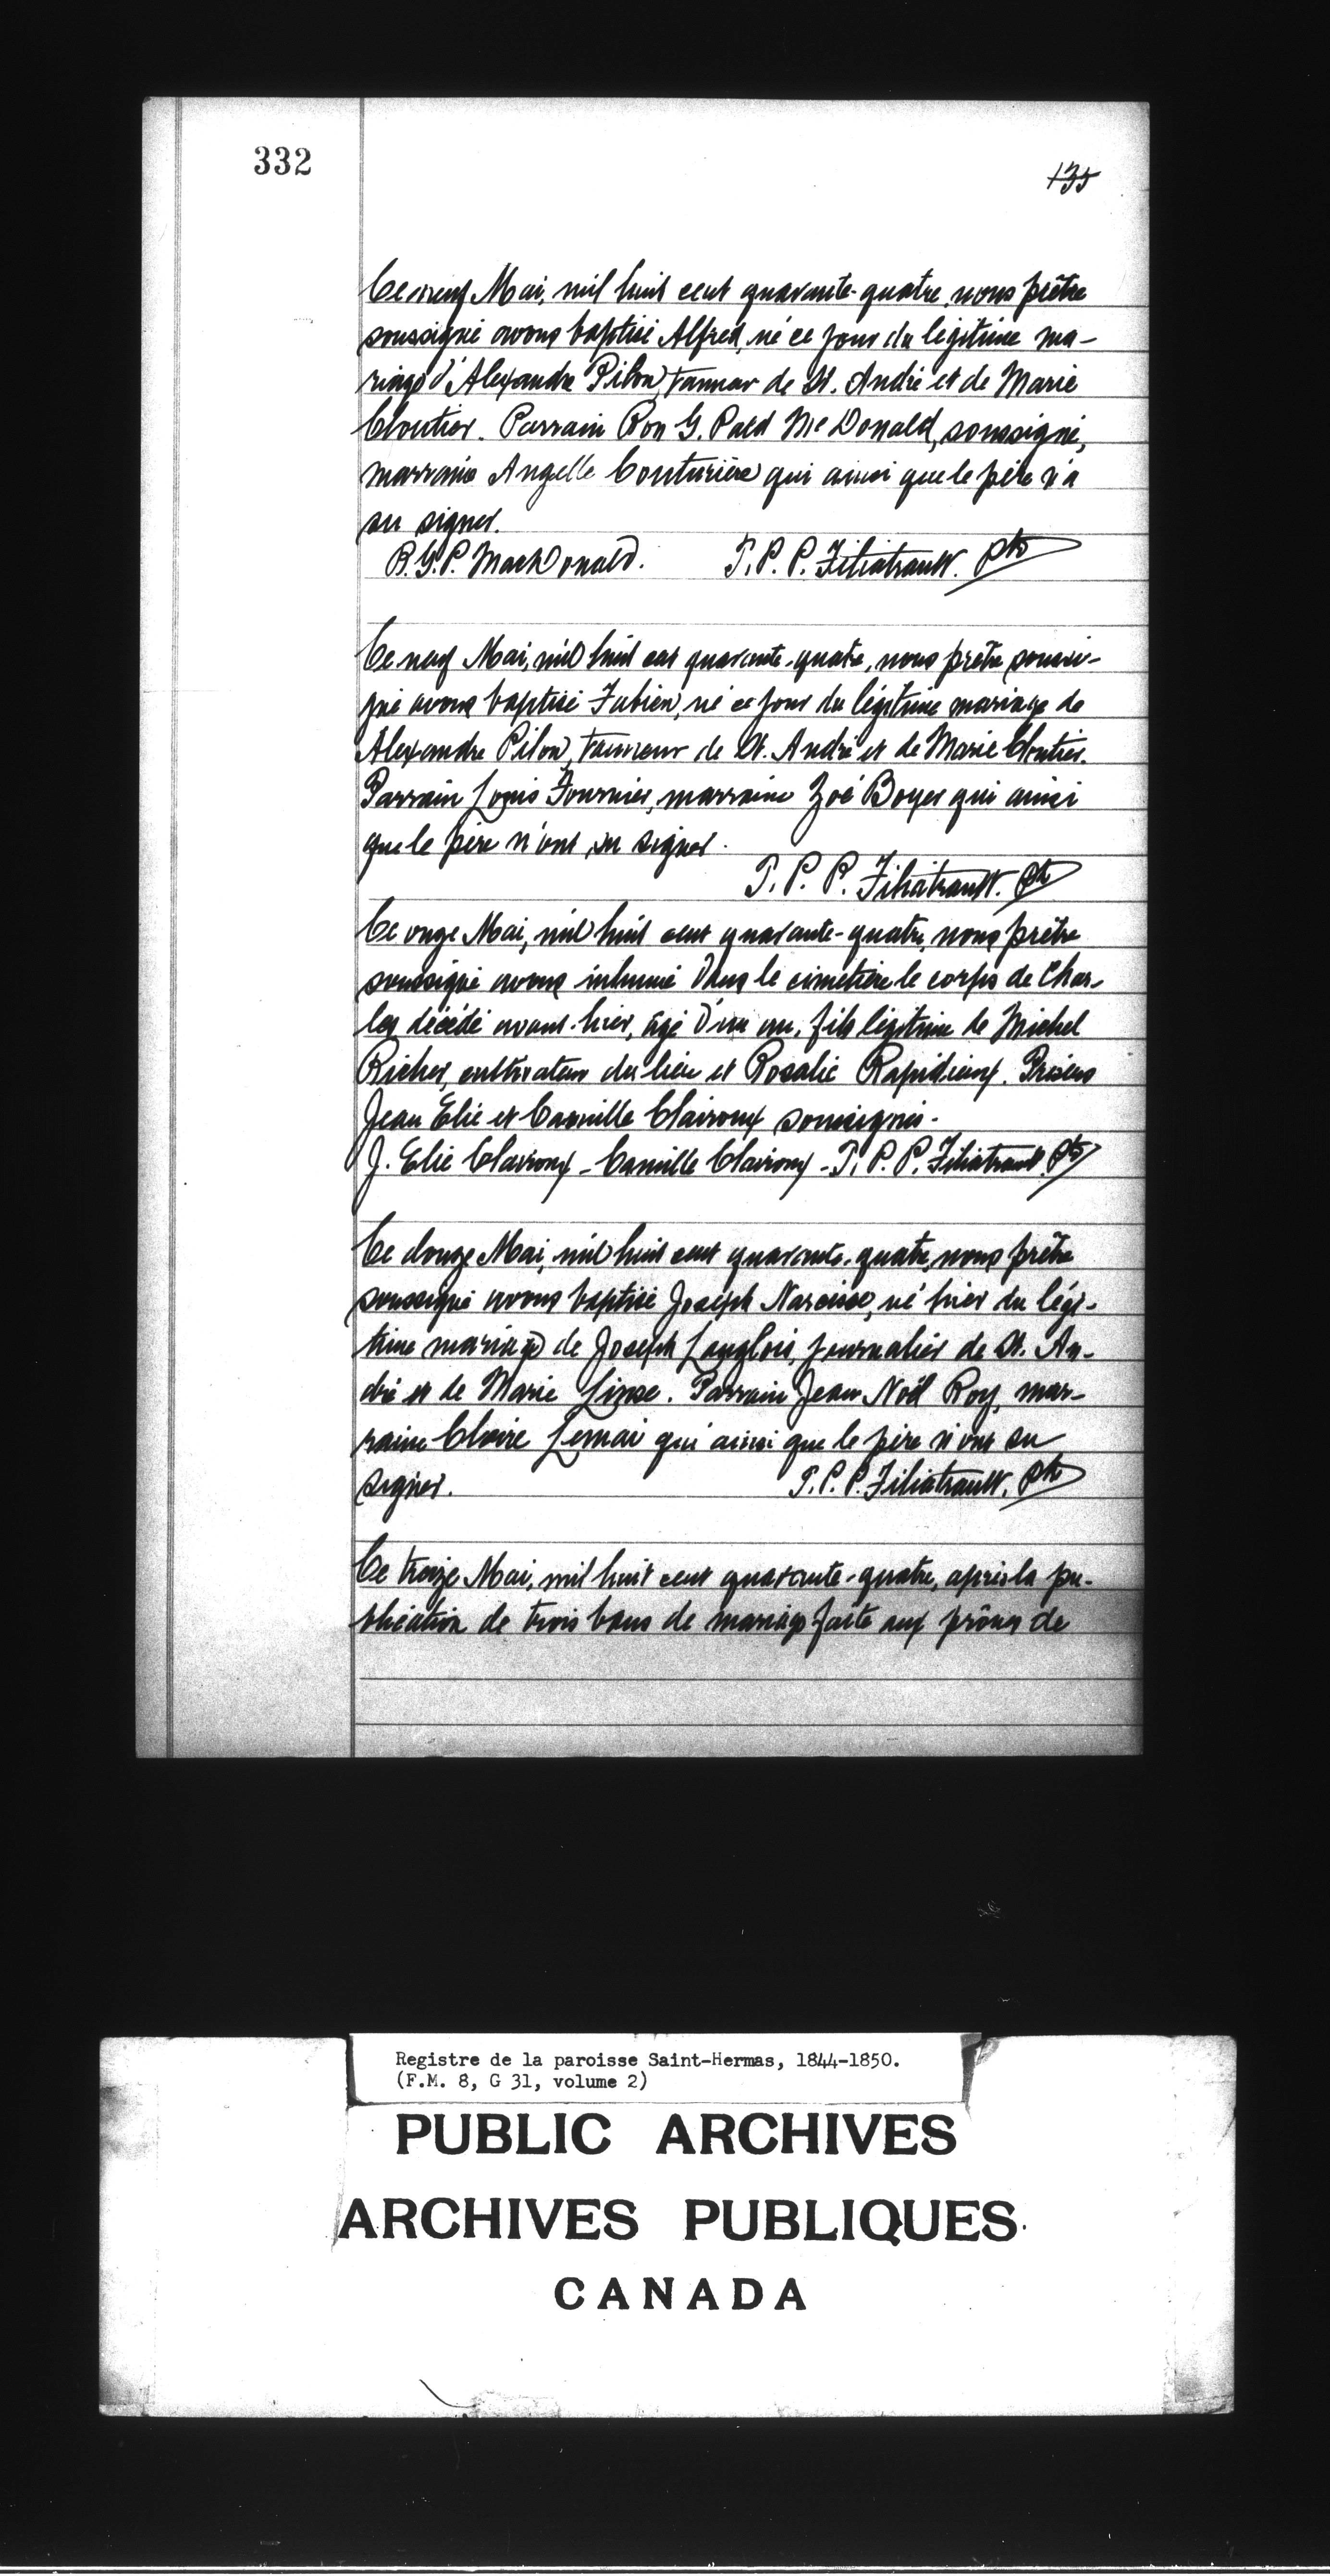 332
135
Ce neuf Mai, mil huit cent quarante-quatre, nous prêtre
soussigné avons baptisé Alfred, né ce jour du légitime ma-
riage d'Alexandre Pilon, tanneur de St. André et de Marie
Cloutier. Parrain Ron G. Pald McDonald, soussigné,
marraine Angelle Couturière qui ainsi que le père n'a
su signer.
R.G.P. MacDonald. T.P.P. Filiatrault. Ptr
Ce neuf Mai, mil huit cent quarante-quatre, nous prêtre soussi-
gné avons baptisé Fabien, né ce jour du légitime mariage de
Alexandre Pilon, tanneur de St. André et de Marie Cloutier.
Parrain Louis Fournier, marraine Zoé Boyer qui ainsi
que le père n'ont su signer.
T. P. P. Filiatrault. Ptr
Ce onze Mai, mil huit cent quarante-quatre, nous prêtre
soussigné avons inhumé dans le cimetière le corps de Char-
les décédé avant-hier, âgé d'un an, fils légitime de Michel
Richer, cultivateur du lieu et Rosalie Rapidieux. Présens
Jean Elie et Camille Clairoux soussignés.
J. Elie Clairoux - Camille Clairoux - T. P. P. Filiatrault Ptr
Ce douze Mai, mil huit cent quarante-quatre, nous prêtre
soussigné avons baptisé Joseph Narcisse, né hier du légi-
time mariage de Joseph Langlois, journalier de St. An-
dré et de Marie Parrain Jean Noël Roy, mar-
raine Claire Lemai qui ainsi que le père n'ont su
signer. T.P.P. Filiatrault. Ptr
Ce treize Mai, mil huit cent quarante-quatre, après la pu-
blication de trois bans de mariage faite aux prônes de
Registre de la paroisse Saint-Hermas, 1844-1850.
(F.M. 8, G 31, volume 2)
PUBLIC ARCHIVES
ARCHIVES PUBLIQUES
CANADA